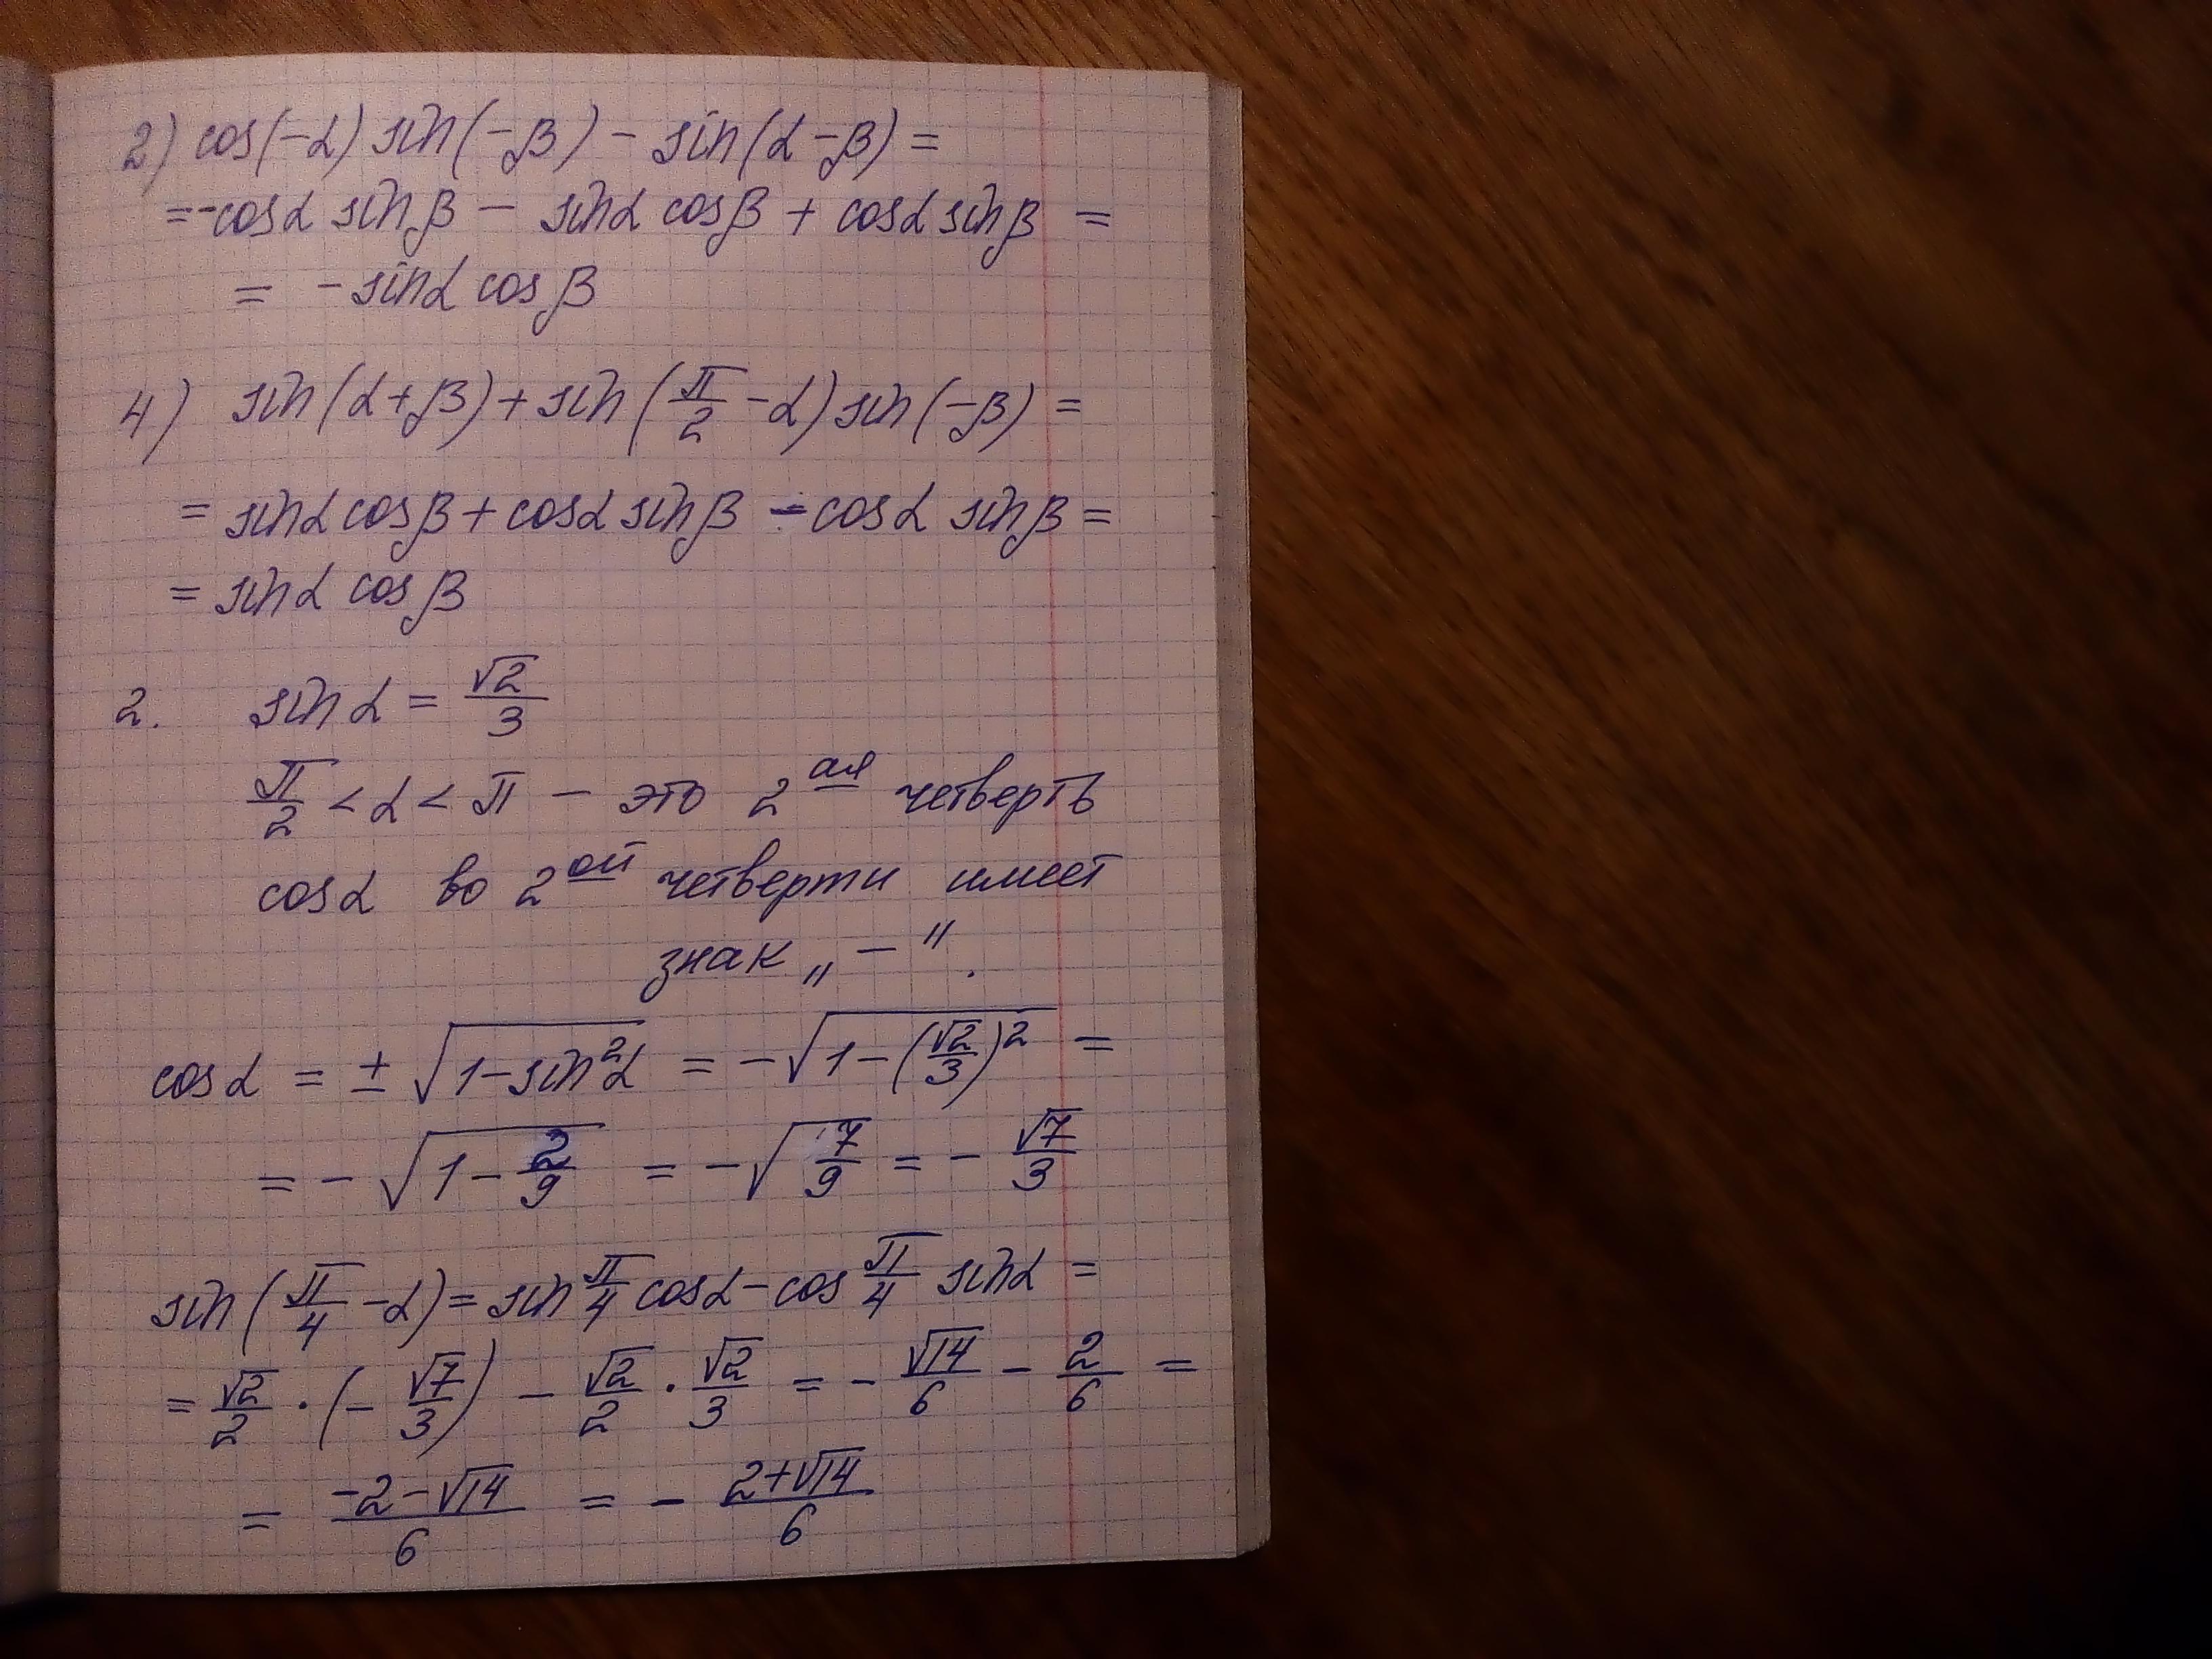 2) cos(-α) sin(-β) - sin(α-β) =
= -cosα sinβ - sinα cosβ + cosα sinβ =
= -sinα cosβ
4) sin(α+β) + sin(π/2 - α) sin(-β) =
= sinα cosβ + cosα sinβ - cosα sinβ =
= sinα cosβ
2. sinα = √2/3
π/2 < α < π - это 2ая четверть
cosα во 2ой четверти имеет
знак „-".
cosα = ± √(1-sin²α) = -√(1-(√2/3)²) =
= -√(1-2/9) = -√(7/9) = -√7/3
sin(π/4 - α) = sin π/4 cosα - cos π/4 sinα =
= √2/2 · (-√7/3) - √2/2 · √2/3 = -√14/6 - 2/6 =
= (-2-√14)/6 = - (2+√14)/6